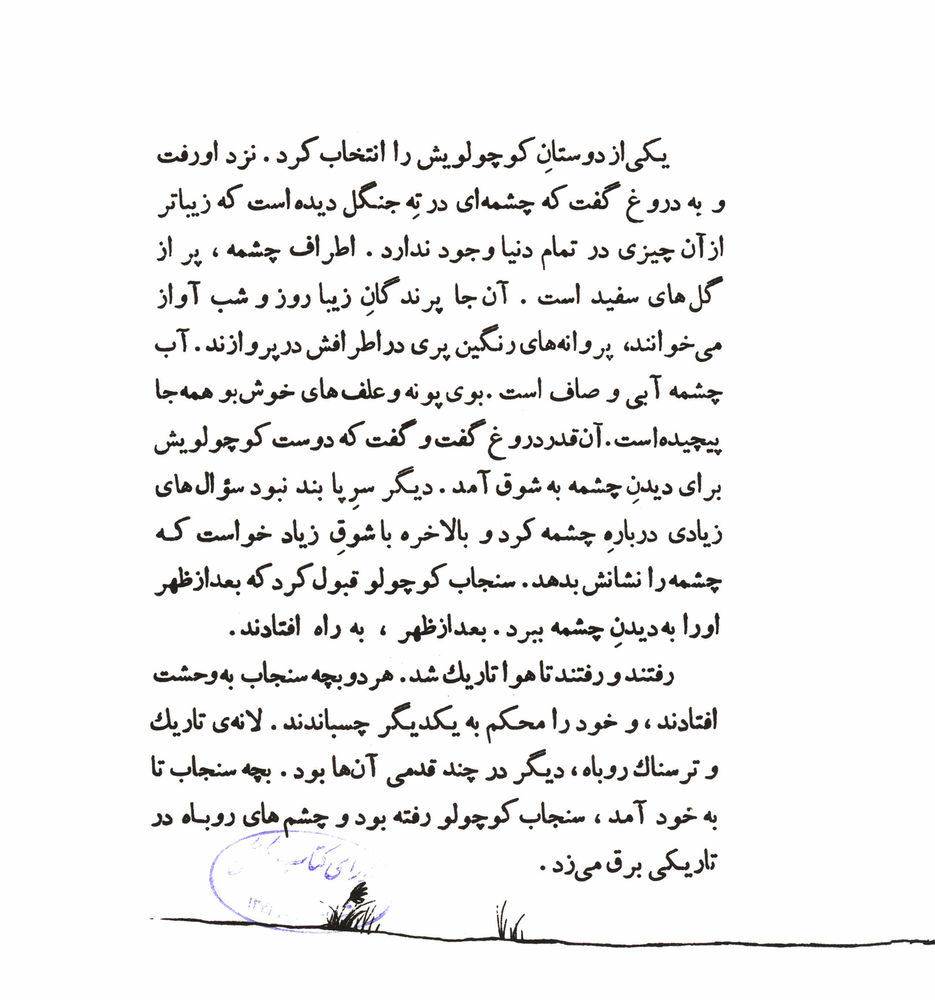 یکی از دوستانِ کوچولویش را انتخاب کرد. نزد او رفت
و به دروغ گفت که چشمه‌ای در تِه جنگل دیده است که زیباتر
از آن چیزی در تمام دنیا وجود ندارد. اطراف چشمه، پر از
گل‌های سفید است. آن‌جا پرندگانِ زیبا روز و شب آواز
می‌خوانند، پروانه‌های رنگین پری در اطرافش در پروازند. آب
چشمه آبی و صاف است. بوی پونه و علف‌های خوش‌بو همه‌جا
پیچیده‌است. آن‌قدر دروغ گفت و گفت که دوست کوچولویش
برای دیدنِ چشمه به شوق آمد. دیگر سرِ پا بند نبود سؤال‌های
زیادی دربارهِ چشمه کرد و بالاخره با شوقِ زیاد خواست کـه
چشمه را نشانش بدهد. سنجاب کوچولو قبول کرد که بعدازظهر
او را به دیدنِ چشمه ببرد. بعدازظهر، به راه افتادند.
رفتند و رفتند تا هوا تاریك شد. هر دو بچه سنجاب به وحشت
افتادند، و خود را محکم به یکدیگر چسباندند. لانه‌ی تاریك
و ترسناك روباه، دیگر در چند قدمی آن‌ها بود. بچه سنجاب تا
به خود آمد، سنجاب کوچولو رفته بود و چشم‌های روبـاه در
تاریکی برق می‌زد.
کتاب